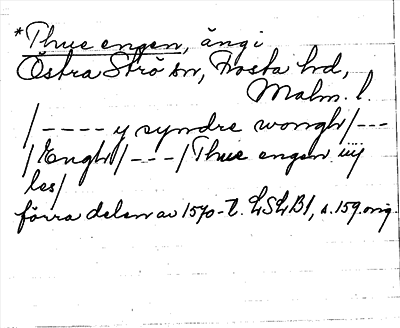 *Thue engen, ängi
Östra Strö sn, Frosta hd,
Malm. l.
/---- y syndre wongh/---
/Engh/---/Thue engen iij
les/
förra delen av 1570-t. LSLB1, s.159.orig.